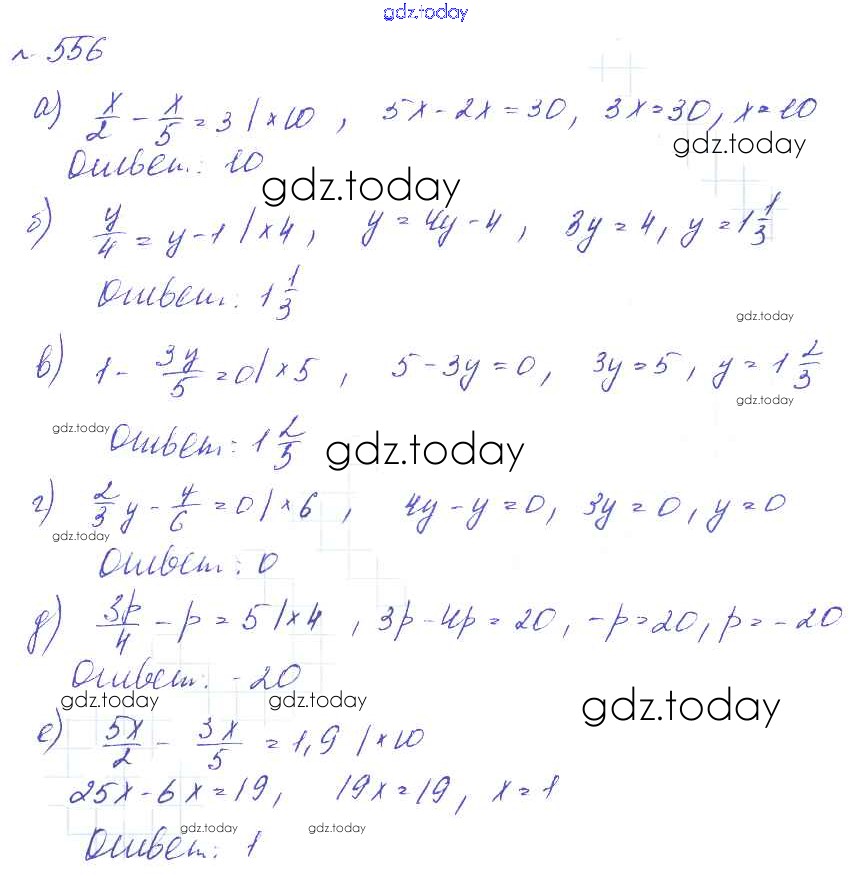 gdz.today
№ 556
а) x/2 - x/5 = 3 | ×10 , 5x - 2x = 30, 3x = 30, x = 10
gdz.today
Ответ: 10
gdz.today
б) y/4 = y - 1 | ×4 , y = 4y - 4 , 3y = 4, y = 1 1/3
Ответ: 1 1/3
gdz.today
в) 1 - 3y/5 = 0 | ×5 , 5 - 3y = 0, 3y = 5, y = 1 2/3
gdz.today
gdz.today Ответ: 1 2/3 gdz.today
г) 2/3 y - y/6 = 0 | ×6 , 4y - y = 0, 3y = 0, y = 0
gdz.today
Ответ: 0
д) 3p/4 - p = 5 | ×4 , 3p - 4p = 20, -p = 20, p = -20
Ответ: -20
gdz.today gdz.today gdz.today
е) 5x/2 - 3x/5 = 1,9 | ×10
25x - 6x = 19, 19x = 19, x = 1
gdz.today gdz.today
Ответ: 1